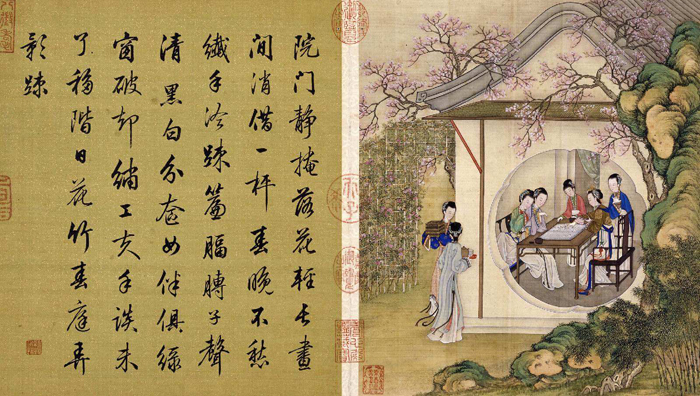 院門靜掩落花輕長晝
間消借一枰春晚不愁
纖手冷疎簾腷膊子聲
清 黑白分奩女伴俱綠
窗破却繡工夫手談未
了移階日花竹春庭弄
影疎